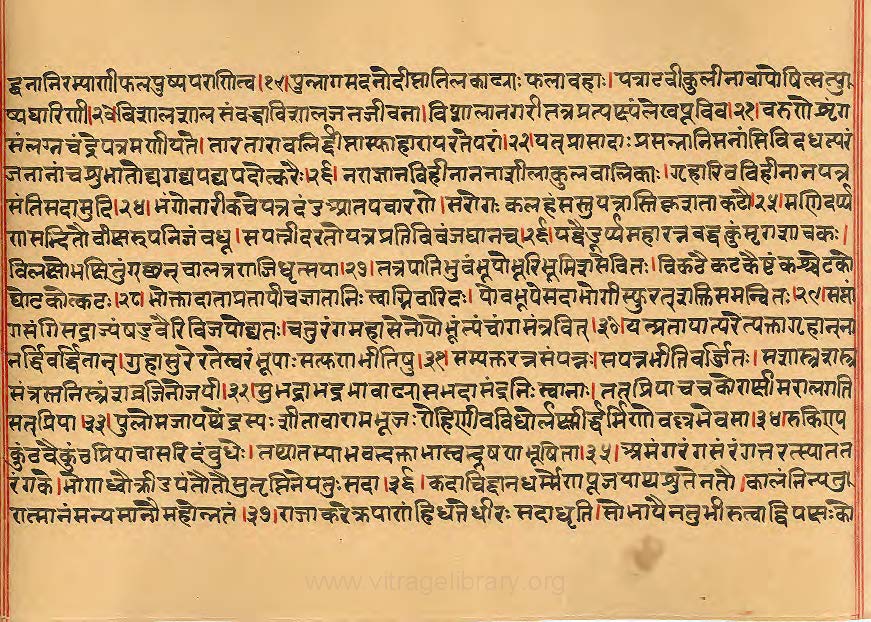 द्वनानिरम्पाणीफलपुष्पपरागित्व।१९।पुन्नागमदनोदीप्तातिलकाढ्याः फलावहाः।पत्राटवीकुलीनावापोषित्सत्पु
ष्पधारिणी।२०।विशालशाल संवद्धाविशालजनजीवना।विशालानगरीतत्रप्रत्यक्षंलेखपूविव।२१। वरुणेशृग
संलग्नचंद्रेपत्रमणीयते। तारतारावलिर्द्दीप्तास्फाहारायरतेपरां।२२।यत्प्रासादाःप्रसन्नानिमनांसिविदधत्परं
जनानांचशुभातोद्यगद्यपद्यपदोत्करैः।२६। नराज्ञानविहीनाननाशीलाकुलवालिकाः।गृहारिवविहीनानपत्र
संतिसदामुदि।२४। भंगोनारीकचेपत्रदंउश्रातपवारणे।सरोगः कलहंसस्तुपत्रास्तिक्रूरताकटौ।२५।मणिदर्प्प
णसन्भितौवीक्षरुपनिजंवधू।सपत्नीदरतोपत्रप्रतिविवंजघानच।२६।पद्वैडूर्प्पमहारत्नवद्वकुंमृगशावकः।
विलक्षोभक्षितुंगछन्चालत्रगाजिधृत्सपा।२७।तत्रपातिभुवंभूपोभूरिभूमिशसेवितः।विकटैकटकैष्टंकश्चेटको
घोटकोत्कटः।२८।भोक्तादाताप्रतापीचज्ञातानिः स्वाग्निवारिदः। पोवभूपेसदाभोगीस्फुरत्शक्तिसमन्वितः।२९।सप्तां
गसंगिसद्राज्पंषड्वैरिविजपोद्यतः।चतुरंगमहासेनोपोभूंत्पंचांगमंत्रवित्।३०।यत्प्रतापात्परेत्पक्तागृहान्नाना
नर्द्धिवर्द्धितान्।गुहासुरेरतेस्वरंभूपाःसत्फणाभीतिषु।३१।सम्पक्तरत्नसंपन्नःसपत्नभीतिवर्ज्जितः।सशास्त्रशस्त्र
संत्रस्तनिस्त्रंशव्रजिनोजपी।३२।सुभद्राभद्रभावाढ्यासमदामंदनिः स्वानाः।तत्प्रिपाचचकोराक्षीमरालगति
सत्प्रिपा।३३।पुलोमजापथेंद्रस्पः शीतावारामभूजः।रोहिणीवविधोर्लक्ष्मीर्द्धर्मिणोवत्रमेवसा।३४।रुकिएप
कुंठवैकुंठप्रियाचासरिदंवुधेः।तथातस्पाभवन्दक्ताभास्वन्दूषणभूषिता।३५।श्रमंगरंगसंरंगत्तरत्स्पातत
रंगके।भोगाध्वौक्रीउपंतौतौसुतृप्तिनेपतुःसदा।३६।कदाचिद्दानधर्म्मेणपूजपाद्यश्रुतेनतौ।कालंनिन्पतु
रात्मानंमन्यमानौमहोन्नतं।३७।राजाकरेक्रपाणंहिधत्तेधीरः सदाधृति।सोभायैनतुभीरुत्वाद्विपक्षःको
www.vitragelibrary.org